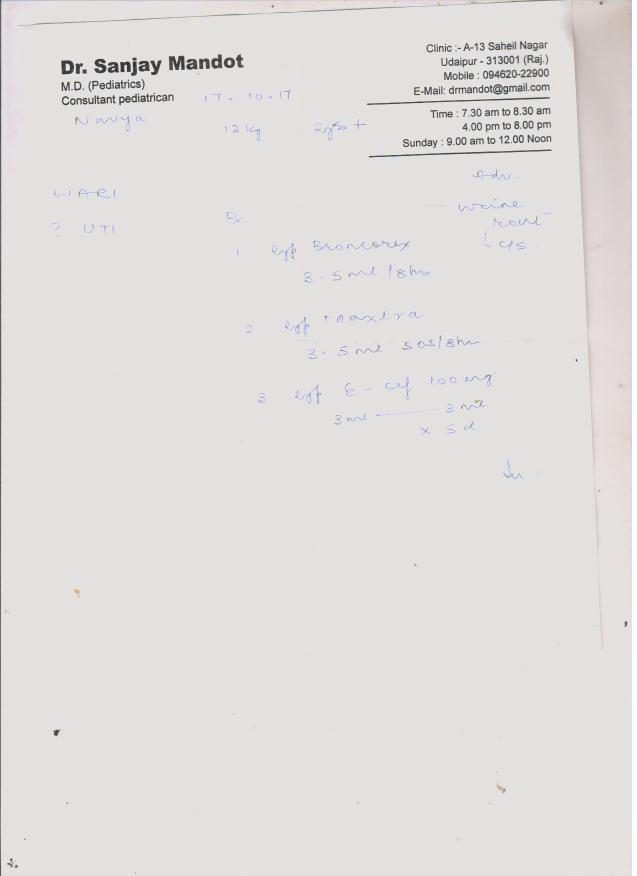 Dr. Sanjay Mandot
M.D. (Pediatrics)
Consultant pediatrican
Clinic :- A-13 Saheil Nagar
Udaipur - 313001 (Raj.)
Mobile : 094620-22900
E-Mail: drmandot@gmail.com
Time : 7.30 am to 8.30 am
4.00 pm to 8.00 pm
Sunday : 9.00 am to 12.00 Noon
17-10-17
Navya 12 kg
Adv.
urine
rout
c/s
WARI
? UTI
Rx
1 syp Broncorex
3.5 ml / 8 hr
2 syp Maxtra
3.5 ml SOS/8hr
3 syp E-cef 100 mg
3 ml — 3 ml
x 5 d